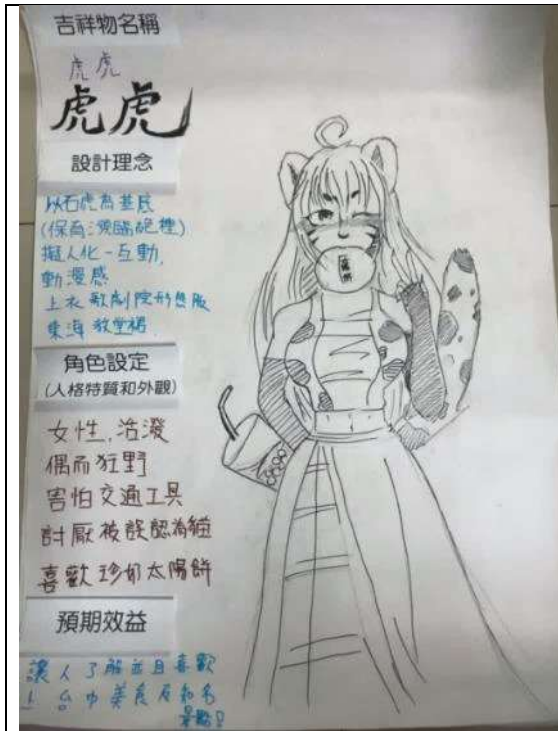 吉祥物名稱
虎虎
虎虎
設計理念
以石虎為基底
(保育:瀕臨絕種)
擬人化-互動,
動漫感
上衣歌劇院形態版
東海教堂裙
角色設定
(人格特質和外觀)
女性,活潑
偶而狂野
害怕交通工具
討厭被誤認為貓
喜歡珍奶太陽餅
預期效益
讓人了解並且喜歡
上台中美食及知名
景點!